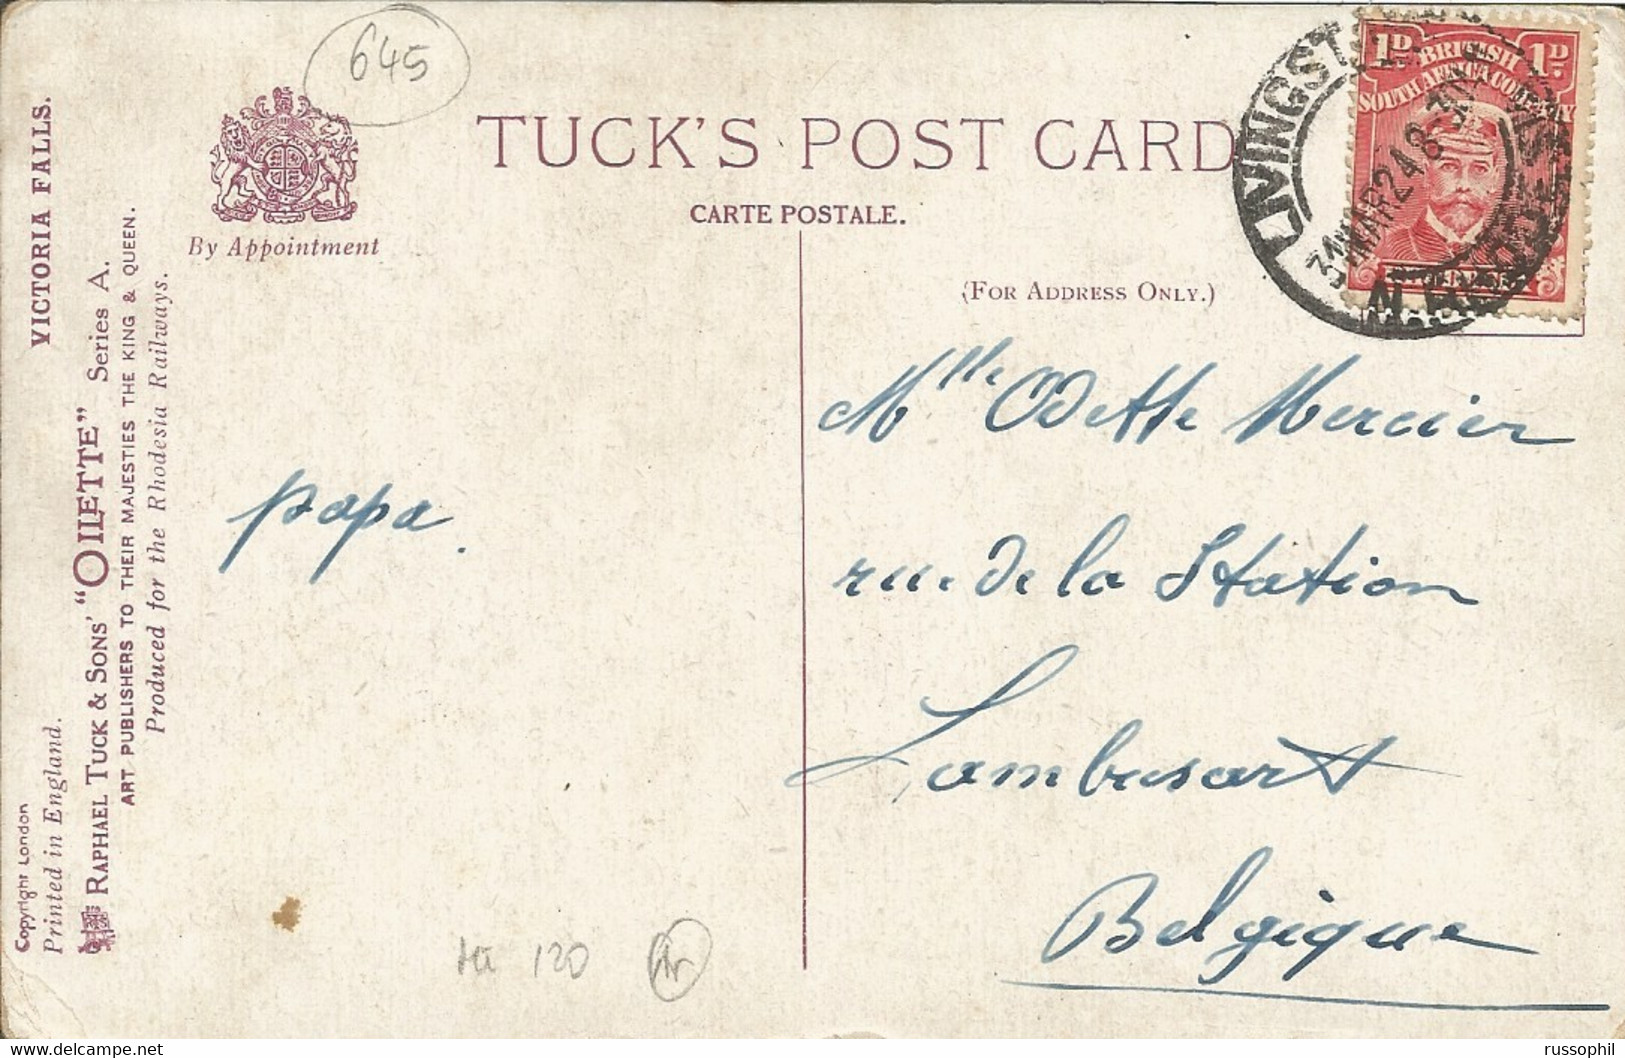 645
TUCK'S POST CARD
CARTE POSTALE.
By Appointment
(FOR ADDRESS ONLY.)
1D. BRITISH 1D.
SOUTH AFRICA COMPANY
LIVINGST
31 MAR 24 8-30
VICTORIA FALLS.
RAPHAEL TUCK & SONS' "OILETTE" Series A.
ART PUBLISHERS TO THEIR MAJESTIES THE KING & QUEEN.
Produced for the Rhodesia Railways.
Copyright London
Printed in England.
papa.
Mlle Odette Mercier
rue de la Station
Lambusart
Belgique
120
russophil